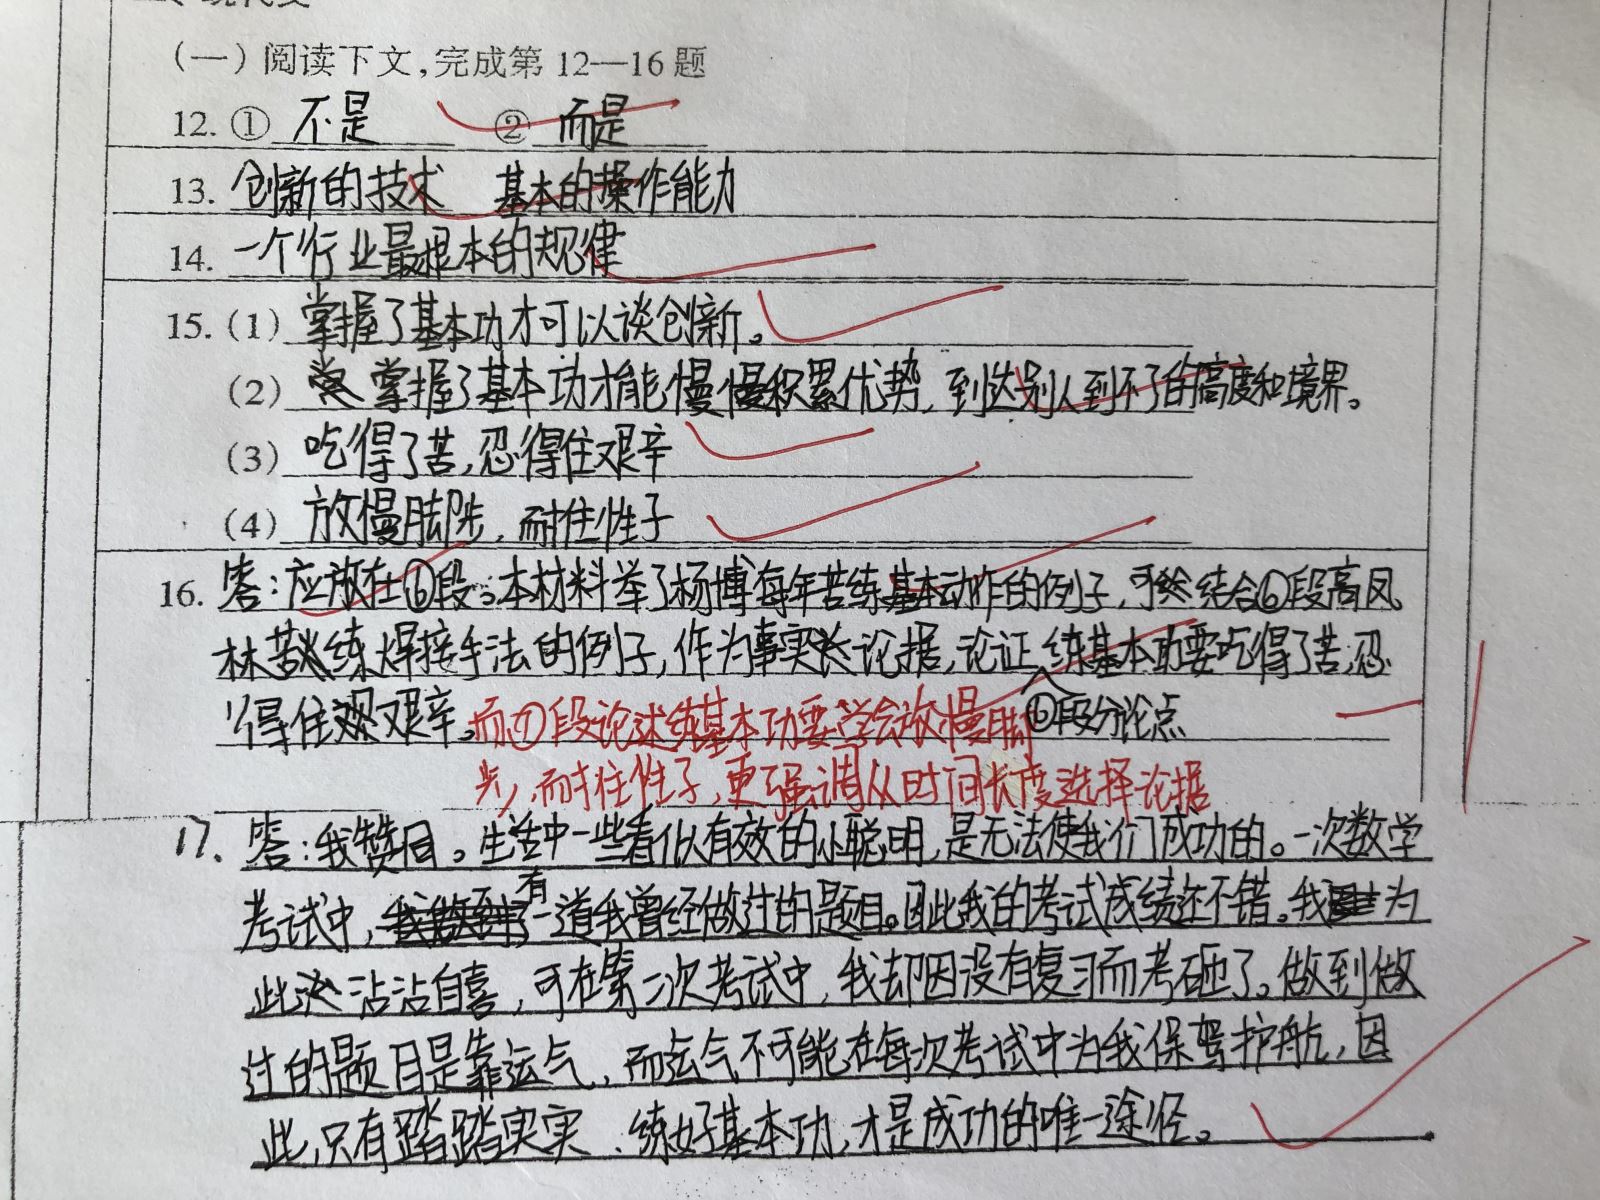 二、现代文
(一)阅读下文,完成第 12—16 题
12. ① 不是 ② 而是
13. 创新的技术 基本的操作能力
14. 一个行业最根本的规律
15. (1) 掌握了基本功才可以谈创新。
(2) 掌握了基本功才能慢慢积累优势,到达别人到不了的高度和境界。
(3) 吃得了苦,忍得住艰辛
(4) 放慢脚步,耐住性子
16. 答:应放在⑥段。本材料举了杨博每年苦练基本动作的例子,可结合⑥段高凤
林苦练焊接手法的例子,作为事实论据,论证⑥段分论点练基本功要吃得了苦,忍
得住艰辛。而⑦段论述练基本功要学会放慢脚
步,耐住性子,更强调从时间长度选择论据
17. 答:我赞同。生活中一些看似有效的小聪明,是无法使我们成功的。一次数学
考试中,有一道我曾经做过的题目。因此我的考试成绩还不错。我为
此沾沾自喜,可在第二次考试中,我却因没有复习而考砸了。做到做
过的题目是靠运气,而运气不可能在每次考试中为我保驾护航,因
此,只有踏踏实实、练好基本功,才是成功的唯一途径。